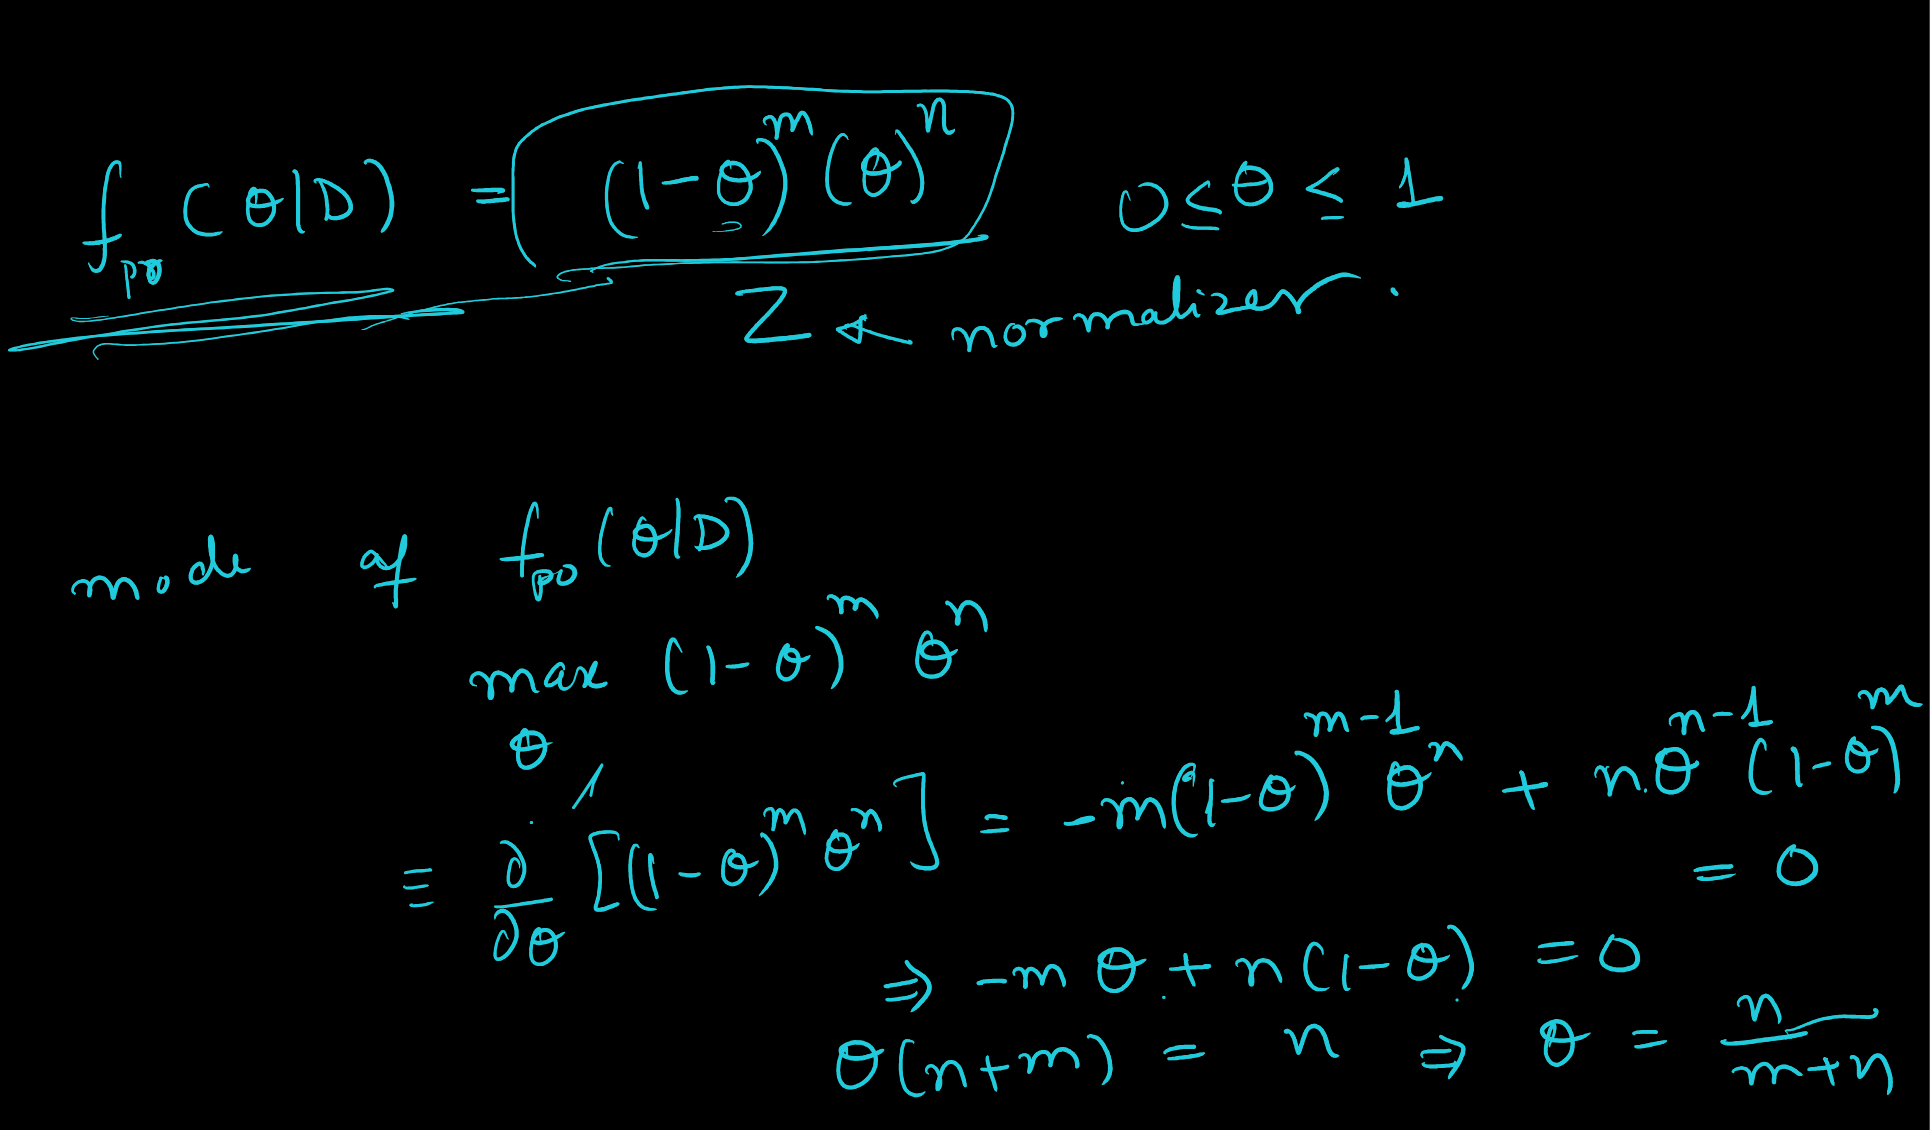 f_po (θ|D) = (1-θ)^m (θ)^n / Z ← normalizer. 0 ≤ θ ≤ 1
mode of f_po (θ|D)
max_θ (1-θ)^m θ^n
≡ ∂/∂θ [(1-θ)^m θ^n] = -m(1-θ)^{m-1} θ^n + n.θ^{n-1} (1-θ)^m
= 0
⇒ -mθ + n(1-θ) = 0
θ(n+m) = n ⇒ θ = n/(m+n)